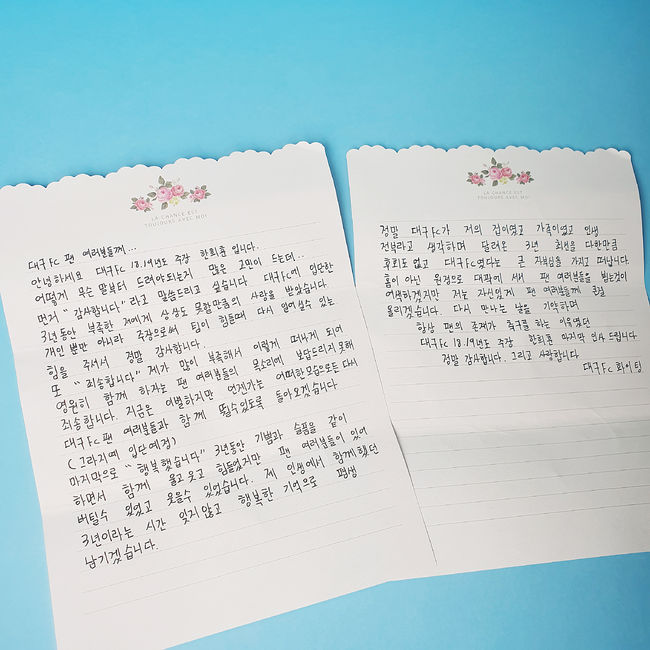 LA CHANCE EST
TOUJOURS AVEC MOI
대구FC 팬 여러분들께...
안녕하세요 대구FC 18.19년도 주장 한희훈 입니다.
어떻게 무슨 말부터 드려야되는지 많은 고민이 드는데...
먼저 "감사합니다" 라고 말씀드리고 싶습니다. 대구FC에 입단한
3년동안 부족한 저에게 상상도 못할만큼의 사랑을 받았습니다.
개인 뿐만 아니라 주장으로써 팀이 힘들때 다시 일어설수 있는
힘을 주셔서 정말 감사합니다.
또 "죄송합니다" 제가 많이 부족해서 이렇게 떠나게 되어
영원히 함께 하자는 팬 여러분들의 목소리에 보답드리지 못해
죄송합니다. 지금은 이별하지만 언젠가는 어떠한모습으로든 다시
대구FC팬 여러분들과 함께 뛸수있도록 돌아오겠습니다
(그라지예 입단예정)
마지막으로 "행복했습니다" 3년동안 기쁨과 슬픔을 같이
하면서 함께 울고웃고 힘들었지만 팬 여러분들이 있어
버틸수 있었고 웃을수 있었습니다. 제 인생에서 함께했던
3년이라는 시간 잊지않고 행복한 기억으로 평생
남기겠습니다.
LA CHANCE EST
TOUJOURS AVEC MOI
정말 대구FC가 저의 집이였고 가족이였고 인생
전부라고 생각하며 달려온 3년 최선을 다한만큼
후회도 없고 대구FC였다는 큰 자부심을 가지고 떠납니다
홈이 아닌 원정으로 대팍에 서서 팬 여러분들을 뵙는것이
어색하겠지만 저는 자신있게 팬 여러분들께 큰절
올리겠습니다. 다시 만나는 날을 기약하며
항상 팬의 존재가 축구를 하는 이유였던
대구FC 18.19년도 주장 한희훈 마지막 인사 드립니다
정말 감사합니다. 그리고 사랑합니다
대구FC 화이팅